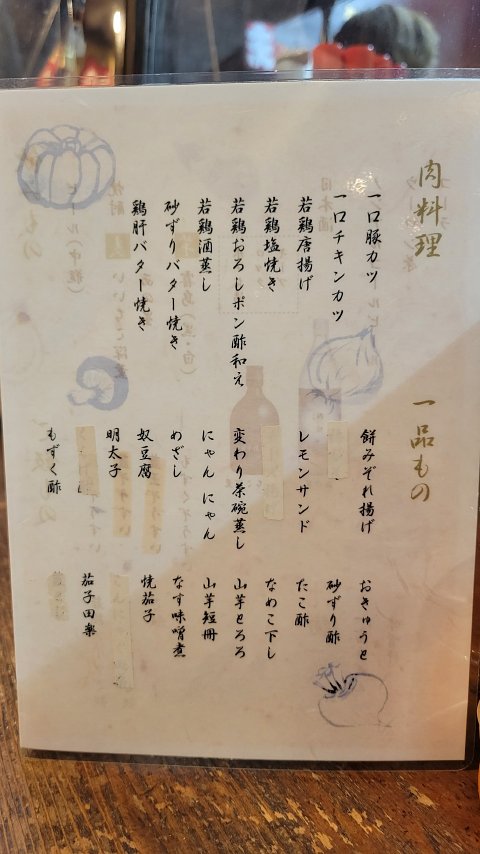 肉料理
一口豚カツ
一口チキンカツ
若鶏唐揚げ
若鶏塩焼き
若鶏おろしポン酢和え
若鶏酒蒸し
砂ずりバター焼き
鶏肝バター焼き
一品もの
餅みぞれ揚げ
レモンサンド
変わり茶碗蒸し
にゃん にゃん
めざし
奴豆腐
明太子
もずく酢
おきゅうと
砂ずり酢
たこ酢
なめこ下し
山芋とろろ
山芋短冊
なす味噌煮
焼茄子
茄子田楽